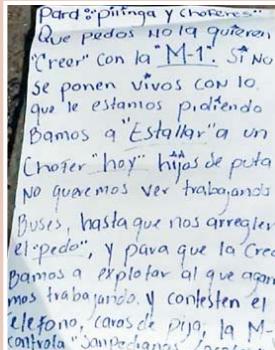 Pard: "pilinga y choferes"
Que pedos No la quieren
"Creer" con la "M-1". Si No
Se ponen vivos con lo
que le estamos pidiendo
Bamos a "Estallar" a un
Chofer "hoy" hijos de puta
No queremos ver trabajando
Buses, hasta que nos arreglen
el "pedo", y para que la Cre
Bamos a explotar al que agarr
mos trabajando. y contesten el
elefono, caras de pija, la M-
controla "Sanpedranas